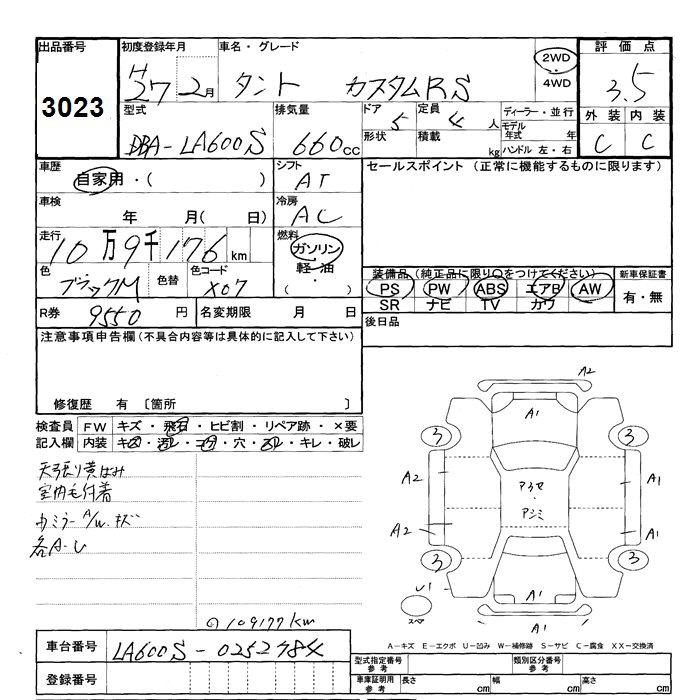 出品番号
3023
初度登録年月
H27 2月
車名・グレード
タント カスタムRS
2WD
4WD
評価点
3.5
外装 内装
C C
型式
DBA-LA600S
排気量
660cc
ドア 5
形状
定員 4人
積載 kg
ディーラー・並行
モデル年式 年
ハンドル 左・右
車歴
自家用・( )
シフト
AT
車検
年 月( 日)
冷房
AC
走行
10万9千176km
燃料
ガソリン
軽油
・
( )
色
ブラックM
色替
色コード
X07
R券 9550円
名変期限 月 日
セールスポイント (正常に機能するものに限ります)
装備品(純正品に限り〇をつけてください)
PS PW ABS エアB AW
SR ナビ TV カワ
新車保証書
有・無
後日品
注意事項申告欄(不具合内容等は具体的に記入して下さい)
修復歴 有 〔箇所 〕
検査員 FW キズ・飛石・ヒビ割・リペア跡・×要
記入欄 内装 キズ・汚レ・コゲ・穴・スレ・キレ・破レ
天張り黄ばみ
室内毛付着
カミラーA/W.キズ
各A-U
109177km
A2
A1
3 3
A2 A1
アクセ
・
アシミ
A2 A1
3 3
U1
A1
スペア
A1
A-キズ E-エクボ U-凹み W-補修跡 S-サビ C-腐食 XX-交換済
車台番号 LA600S-0252784
登録番号
型式指定番号 参考
類別区分番号 参考
車庫証明用 参考
長さ cm 幅 cm 高さ cm